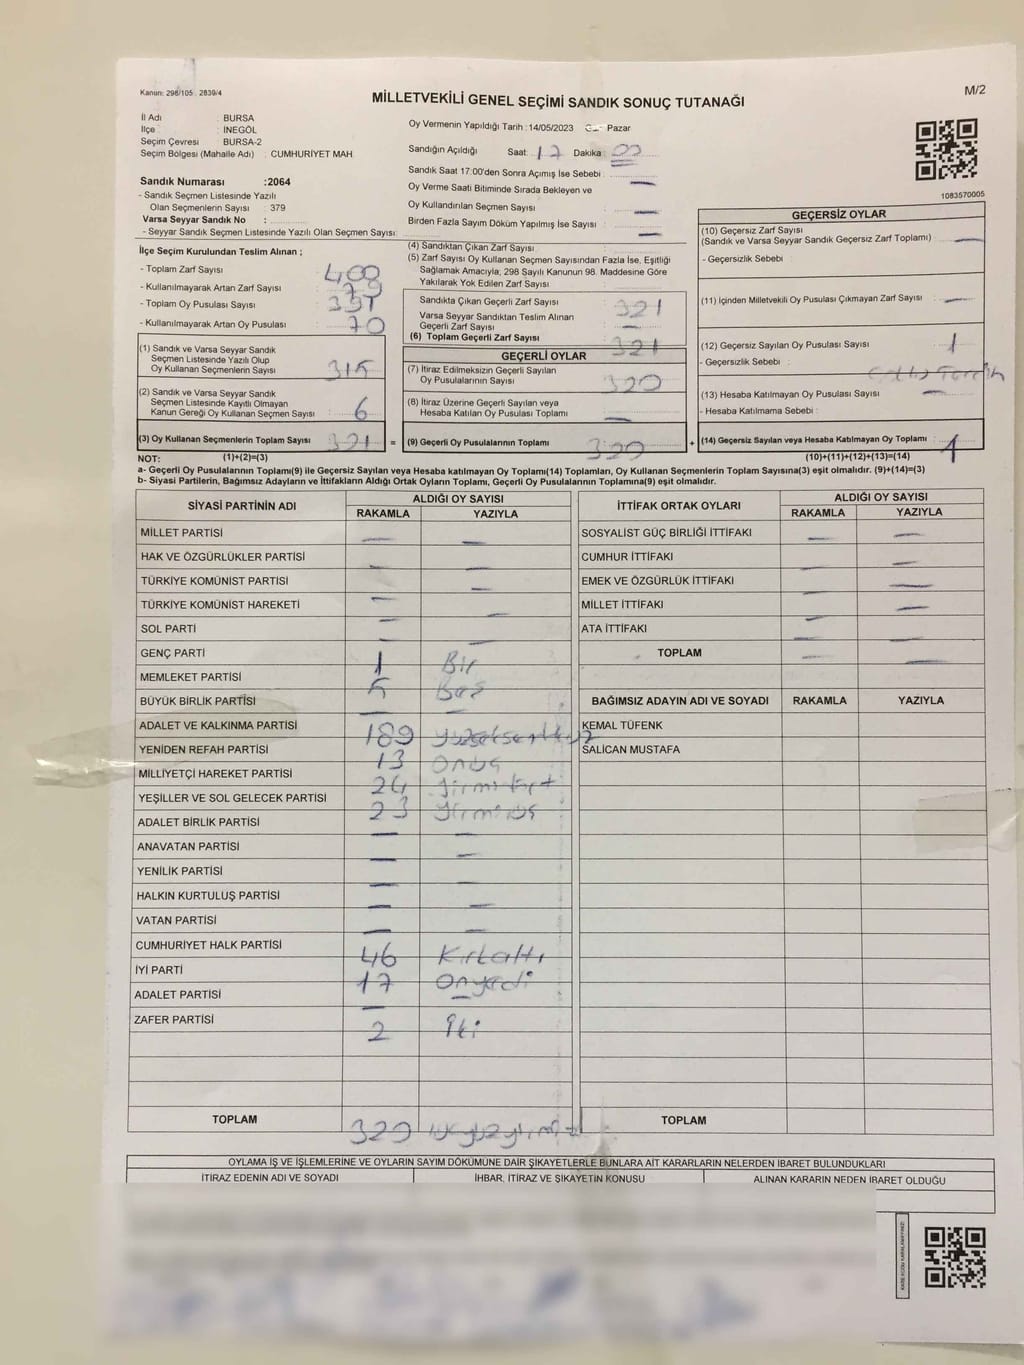 Kanun: 298/105 2839/4
MİLLETVEKİLİ GENEL SEÇİMİ SANDIK SONUÇ TUTANAĞI
M/2
İl Adı : BURSA
İlçe : İNEGÖL
Seçim Çevresi : BURSA-2
Seçim Bölgesi (Mahalle Adı) : CUMHURİYET MAH
Sandık Numarası :2064
- Sandık Seçmen Listesinde Yazılı
Olan Seçmenlerin Sayısı : 379
Varsa Seyyar Sandık No :
- Seyyar Sandık Seçmen Listesinde Yazılı Olan Seçmen Sayısı:
Oy Vermenin Yapıldığı Tarih :14/05/2023 Pazar
Sandığın Açıldığı Saat: 17 Dakika: 00
Sandık Saat 17:00'den Sonra Açımış İse Sebebi : —
Oy Verme Saati Bitiminde Sırada Bekleyen ve
Oy Kullandırılan Seçmen Sayısı : —
Birden Fazla Sayım Döküm Yapılmış İse Sayısı : —
1083570005
İlçe Seçim Kurulundan Teslim Alınan ;
- Toplam Zarf Sayısı : 400
- Kullanılmayarak Artan Zarf Sayısı : 79
- Toplam Oy Pusulası Sayısı :
- Kullanılmayarak Artan Oy Pusulası : 70
(1) Sandık ve Varsa Seyyar Sandık
Seçmen Listesinde Yazılı Olup
Oy Kullanan Seçmenlerin Sayısı : 315
(2) Sandık ve Varsa Seyyar Sandık
Seçmen Listesinde Kayıtlı Olmayan
Kanun Gereği Oy Kullanan Seçmen Sayısı : 6
(3) Oy Kullanan Seçmenlerin Toplam Sayısı : 321 =
(4) Sandıktan Çıkan Zarf Sayısı :
(5) Zarf Sayısı Oy Kullanan Seçmen Sayısından Fazla İse, Eşitliği
Sağlamak Amacıyla; 298 Sayılı Kanunun 98. Maddesine Göre
Yakılarak Yok Edilen Zarf Sayısı :
Sandıkta Çıkan Geçerli Zarf Sayısı : 321
Varsa Seyyar Sandıktan Teslim Alınan
Geçerli Zarf Sayısı : —
(6) Toplam Geçerli Zarf Sayısı : 321
GEÇERLİ OYLAR
(7) İtiraz Edilmeksizin Geçerli Sayılan
Oy Pusulalarının Sayısı : 320
(8) İtiraz Üzerine Geçerli Sayılan veya
Hesaba Katılan Oy Pusulası Toplamı : —
(9) Geçerli Oy Pusulalarının Toplamı : 320 +
GEÇERSİZ OYLAR
(10) Geçersiz Zarf Sayısı
(Sandık ve Varsa Seyyar Sandık Geçersiz Zarf Toplamı) : —
- Geçersizlik Sebebi :
(11) İçinden Milletvekili Oy Pusulası Çıkmayan Zarf Sayısı : —
(12) Geçersiz Sayılan Oy Pusulası Sayısı : 1
- Geçersizlik Sebebi :
(13) Hesaba Katılmayan Oy Pusulası Sayısı : —
- Hesaba Katılmama Sebebi :
(14) Geçersiz Sayılan veya Hesaba Katılmayan Oy Toplamı : 1
NOT: (1)+(2)=(3) (10)+(11)+(12)+(13)=(14)
a- Geçerli Oy Pusulalarının Toplamı(9) ile Geçersiz Sayılan veya Hesaba katılmayan Oy Toplamı(14) Toplamları, Oy Kullanan Seçmenlerin Toplam Sayısına(3) eşit olmalıdır. (9)+(14)=(3)
b- Siyasi Partilerin, Bağımsız Adayların ve İttifakların Aldığı Ortak Oyların Toplamı, Geçerli Oy Pusulalarının Toplamına(9) eşit olmalıdır.
SİYASİ PARTİNİN ADI ALDIĞI OY SAYISI
RAKAMLA YAZIYLA
MİLLET PARTİSİ — —
HAK VE ÖZGÜRLÜKLER PARTİSİ — —
TÜRKİYE KOMÜNİST PARTİSİ —
TÜRKİYE KOMÜNİST HAREKETİ — —
SOL PARTİ — —
GENÇ PARTİ 1 Bir
MEMLEKET PARTİSİ 5 Beş
BÜYÜK BİRLİK PARTİSİ — —
ADALET VE KALKINMA PARTİSİ 189 yüzseksendokuz
YENİDEN REFAH PARTİSİ 13 Onüç
MİLLİYETÇİ HAREKET PARTİSİ 24 yirmidört
YEŞİLLER VE SOL GELECEK PARTİSİ 23 yirmiüç
ADALET BİRLİK PARTİSİ — —
ANAVATAN PARTİSİ — —
YENİLİK PARTİSİ — —
HALKIN KURTULUŞ PARTİSİ — —
VATAN PARTİSİ — —
CUMHURİYET HALK PARTİSİ 46 Kırkaltı
İYİ PARTİ 17 Onyedi
ADALET PARTİSİ — —
ZAFER PARTİSİ 2 İki
TOPLAM 320 üçyüzyirmi
İTTİFAK ORTAK OYLARI ALDIĞI OY SAYISI
RAKAMLA YAZIYLA
SOSYALİST GÜÇ BİRLİĞİ İTTİFAKI — —
CUMHUR İTTİFAKI — —
EMEK VE ÖZGÜRLÜK İTTİFAKI — —
MİLLET İTTİFAKI — —
ATA İTTİFAKI —
TOPLAM — —
BAĞIMSIZ ADAYIN ADI VE SOYADI RAKAMLA YAZIYLA
KEMAL TÜFENK
SALİCAN MUSTAFA
TOPLAM
OYLAMA İŞ VE İŞLEMLERİNE VE OYLARIN SAYIM DÖKÜMÜNE DAİR ŞİKAYETLERLE BUNLARA AİT KARARLARIN NELERDEN İBARET BULUNDUKLARI
İTİRAZ EDENİN ADI VE SOYADI İHBAR, İTİRAZ VE ŞİKAYETİN KONUSU ALINAN KARARIN NEDEN İBARET OLDUĞU